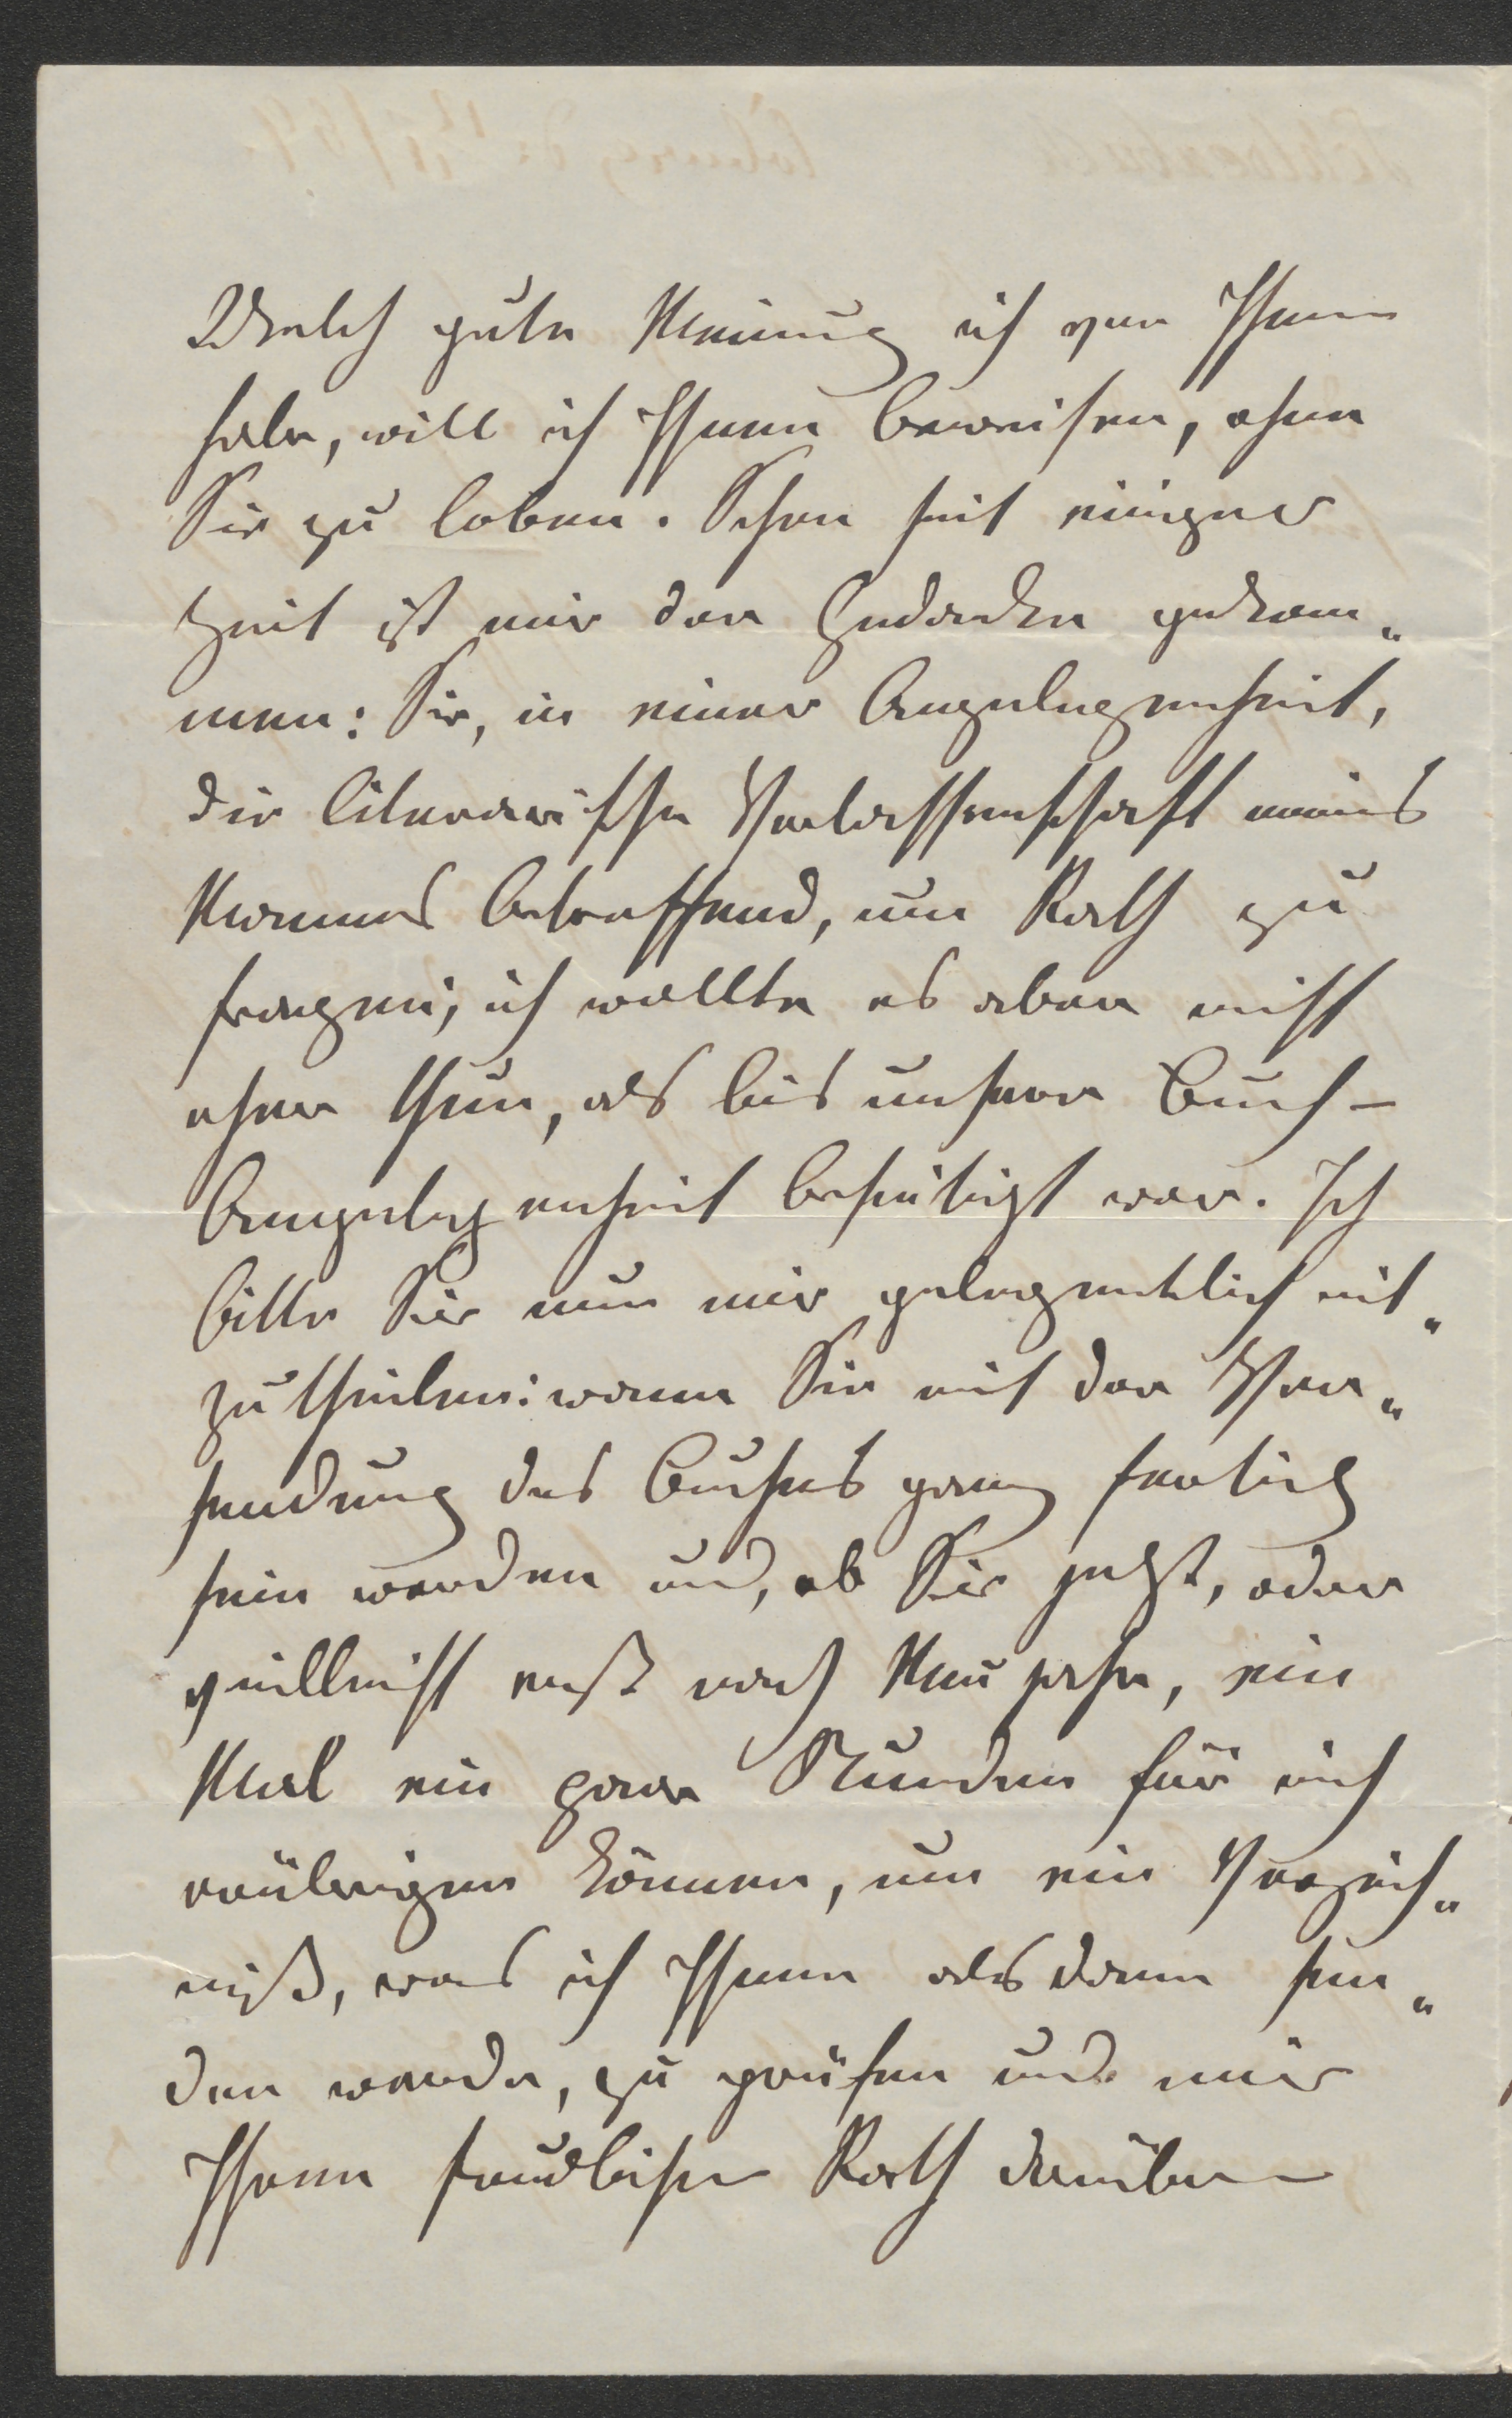 Welch gute Meinung ich von Ihnen
habe, will ich Ihnen beweisen, ohne
Sie zu loben. Schon seit einiger
Zeit ist mir der Gedanken gekom„
men: Sie, in einer Angelegenheit,
die literarische Verlassenschaft meines
Mannes betreffend, um Rath zu
fragen; ich wollte es aber nicht
eher thun, als bis unsere Buch-
Angelegenheit beseitigt war. Ich
bitte Sie nun mir gelegentlich mit„
zutheilen: wann Sie mit der Ver„
sendung des Buches ganz fertig
sein werden und, ob Sie jetzt, oder
vielleicht erst nach Neujahr, ein
Mal ein paar Stunden für mich
erübrigen können, um ein Verzeich„
niß, was ich Ihnen alsdann sen„
den werde, zu prüfen und mir
Ihren freundlichen Rath darüber